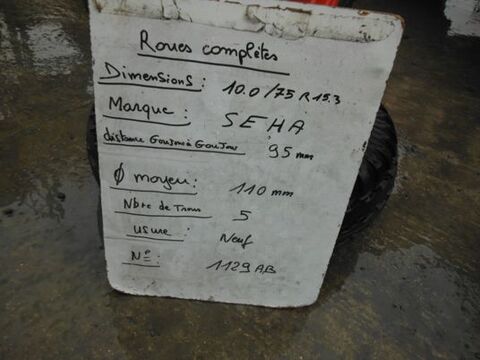 Roues complètes
Dimensions : 10.0/75 R 15.3
Marque : SEHA
distance Goujon à Goujon 95 mm
Ø moyeu : 110 mm
Nbre de Trous 5
usure : Neuf
N° : 1129 AB